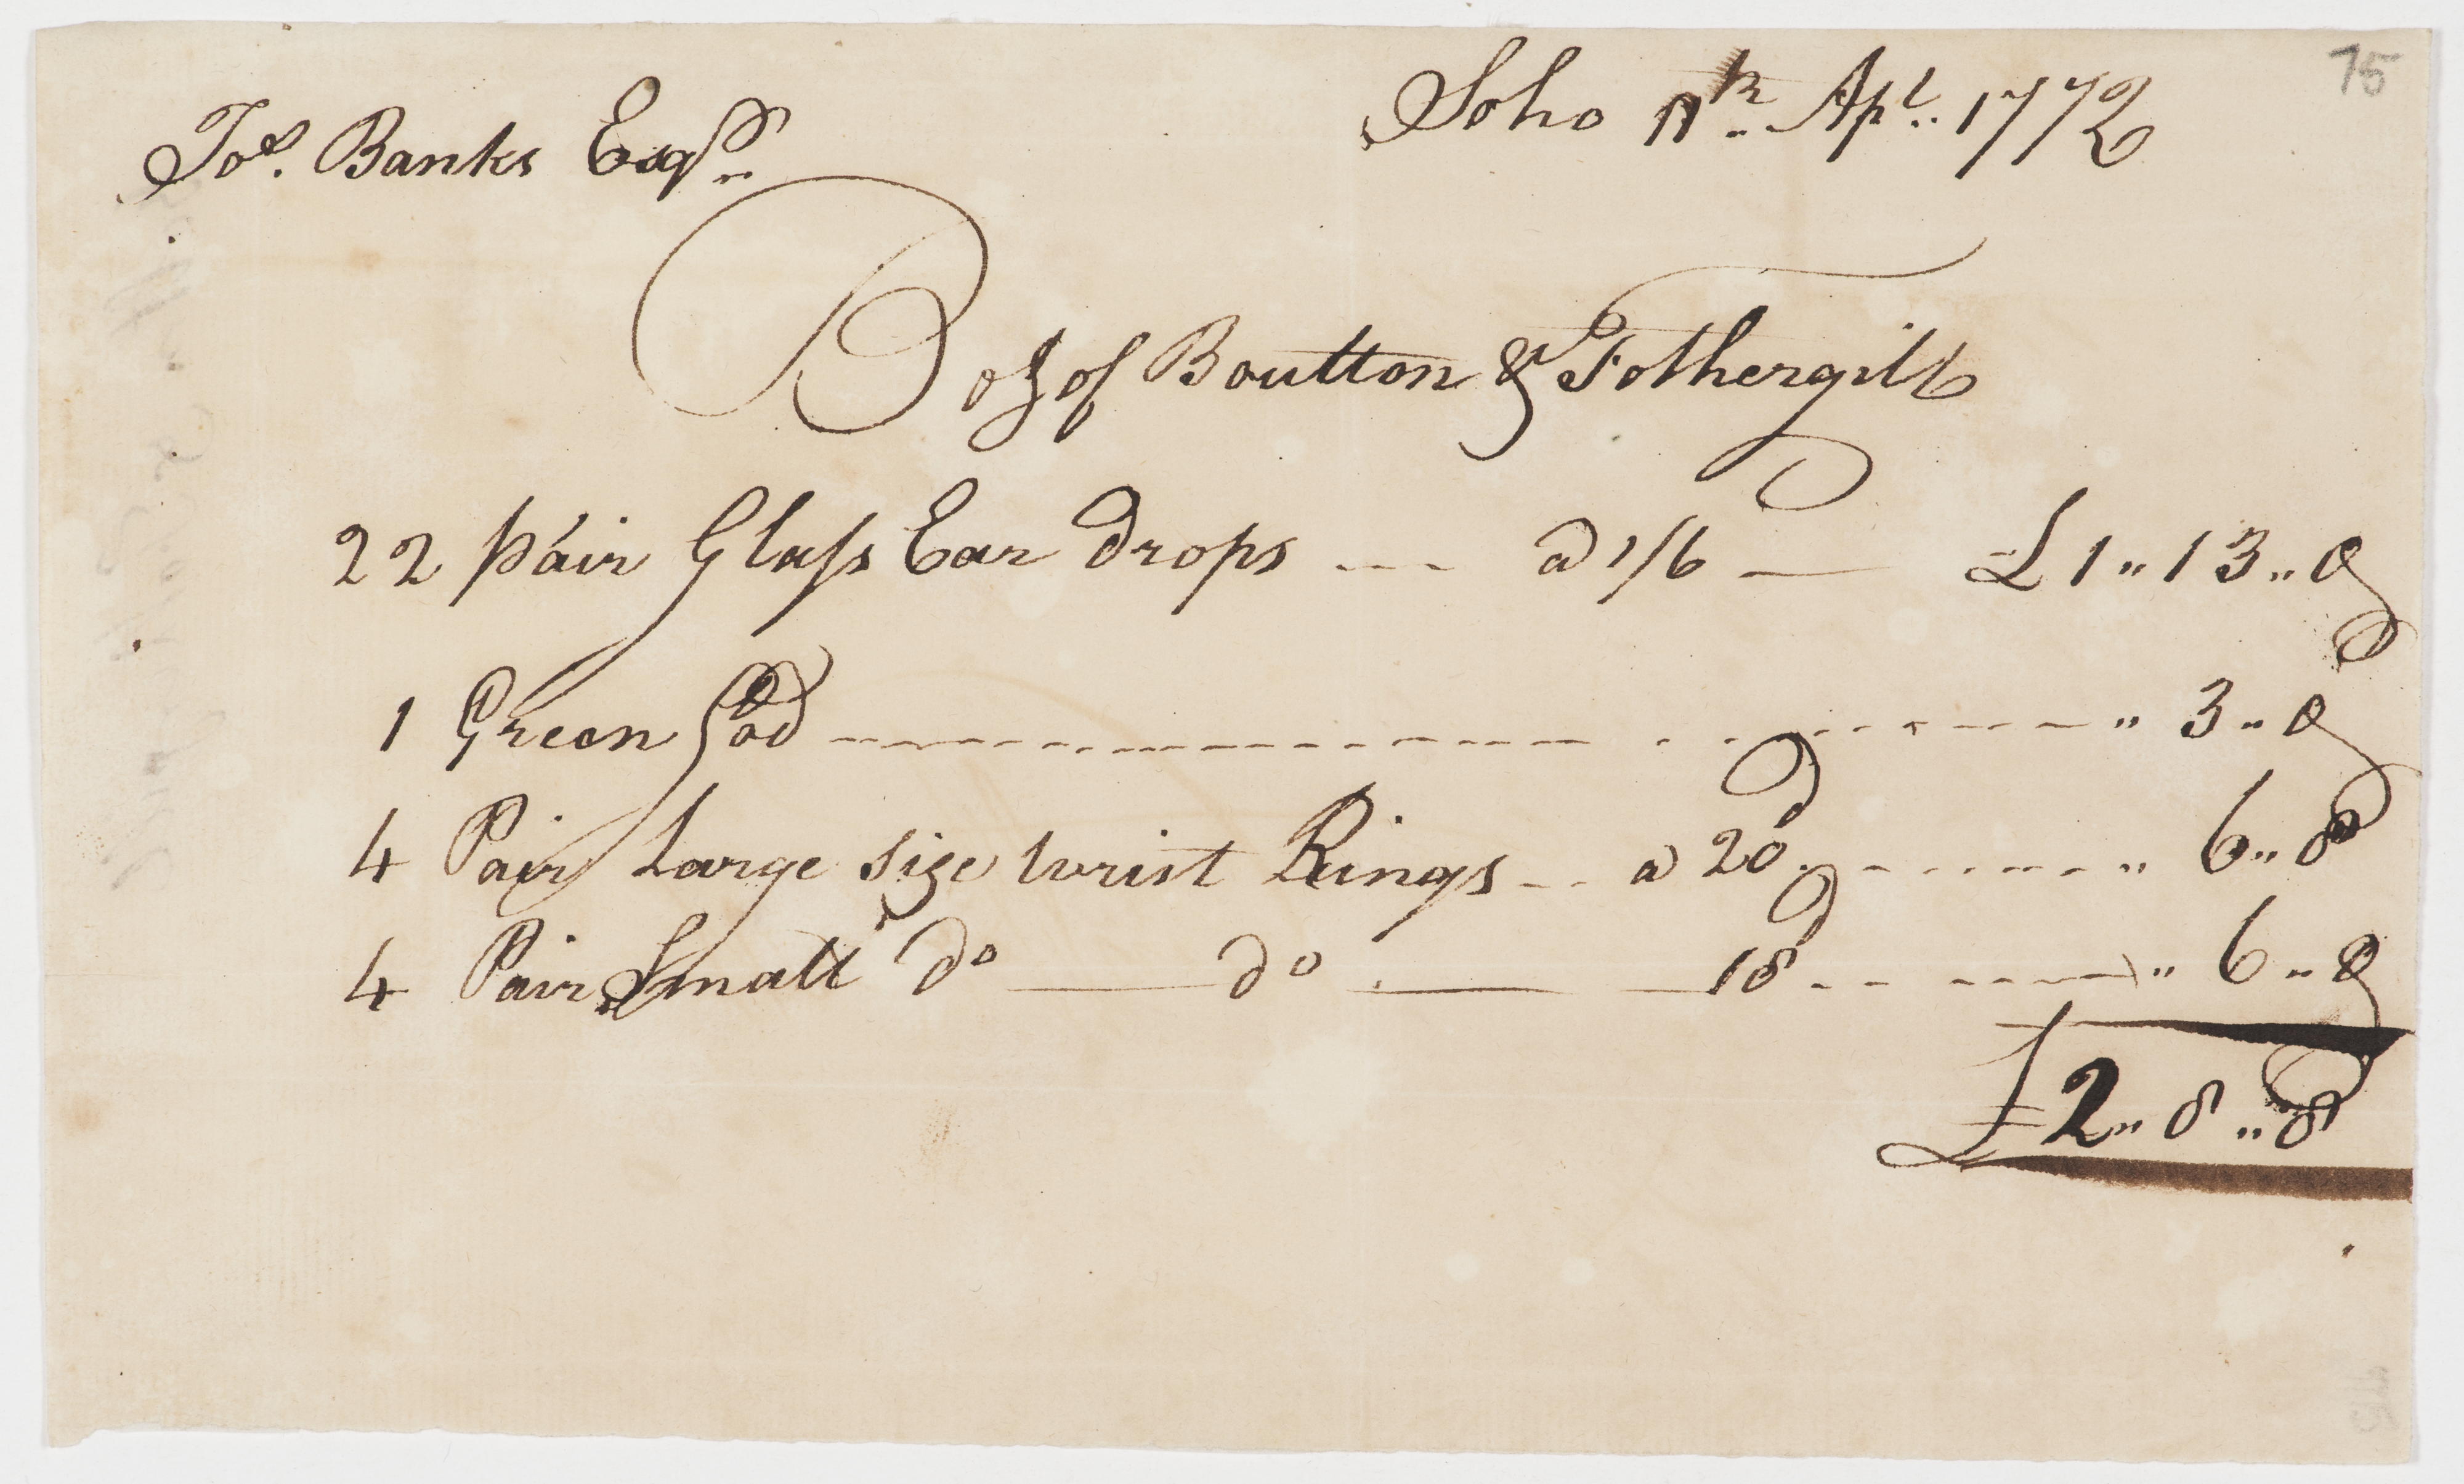 75
Soho 11th Apl. 1772
Jos. Banks Esqr.
Bot of Boulton & Fothergill
22 pair Glass Ear Drops --- a 1/6 — £1 " 13 " 0
1 Green --- " 3 " 0
4 Pair Large size wrist Rings -- a 20d. --- " 6 " 8
4 Pair Small do — do — 18d --- " 6 " 0
£2 " 8 " 8